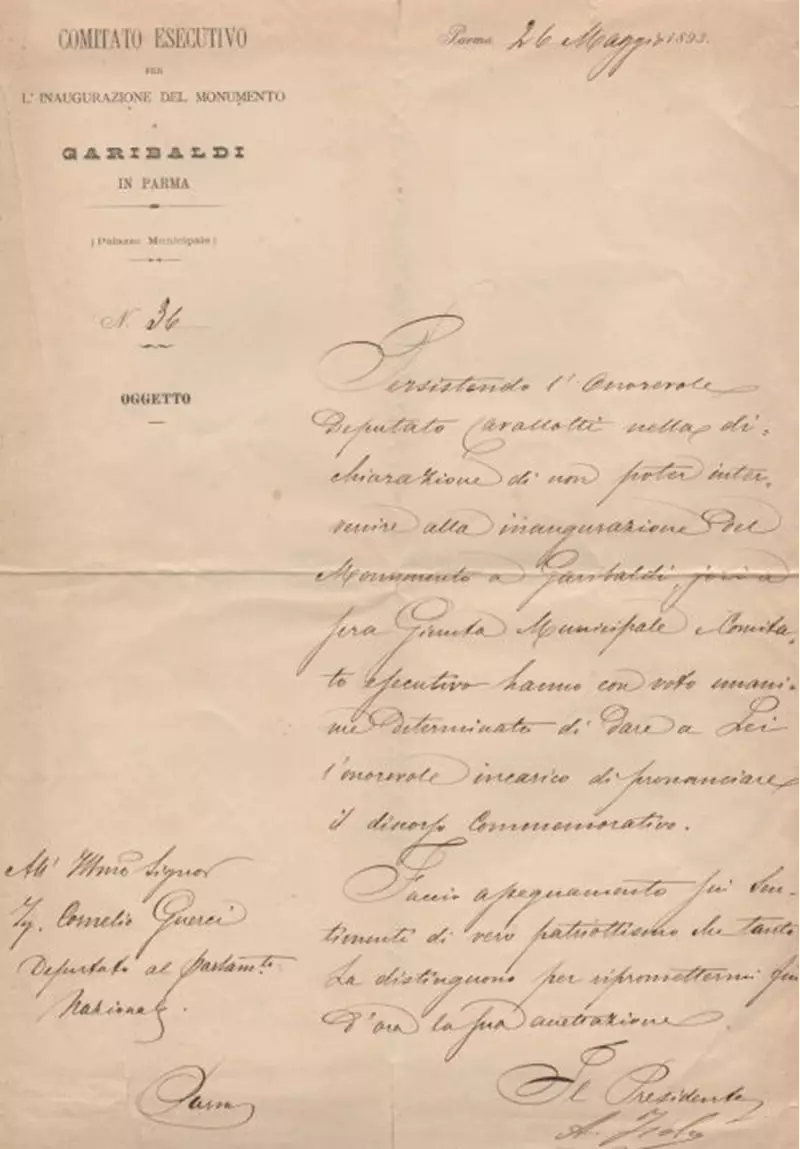 COMITATO ESECUTIVO
PER
L'INAUGURAZIONE DEL MONUMENTO
A
GARIBALDI
IN PARMA
(Palazzo Municipale)
N. 36
OGGETTO
Parma 26 Maggio 1893.
Persistendo l'Onorevole
Deputato Cavallotti nella di-
chiarazione di non poter inter-
venire alla inaugurazione del
Monumento a Garibaldi, jeri a
sera Giunta Municipale e Comita-
to esecutivo hanno con voto unani-
me determinato di dare a Lei
l'onorevole incarico di pronunciare
il discorso Commemorativo.
Faccio assegnamento sui Sen-
timenti di vero patriottismo che tanto
La distinguono per ripromettermi fin
d'ora la sua accettazione.
Il Presidente
A.
All' Illmo Signor
Ing. Cornelio Guerci
Deputato al Parlamto
Nazionale.
Parma